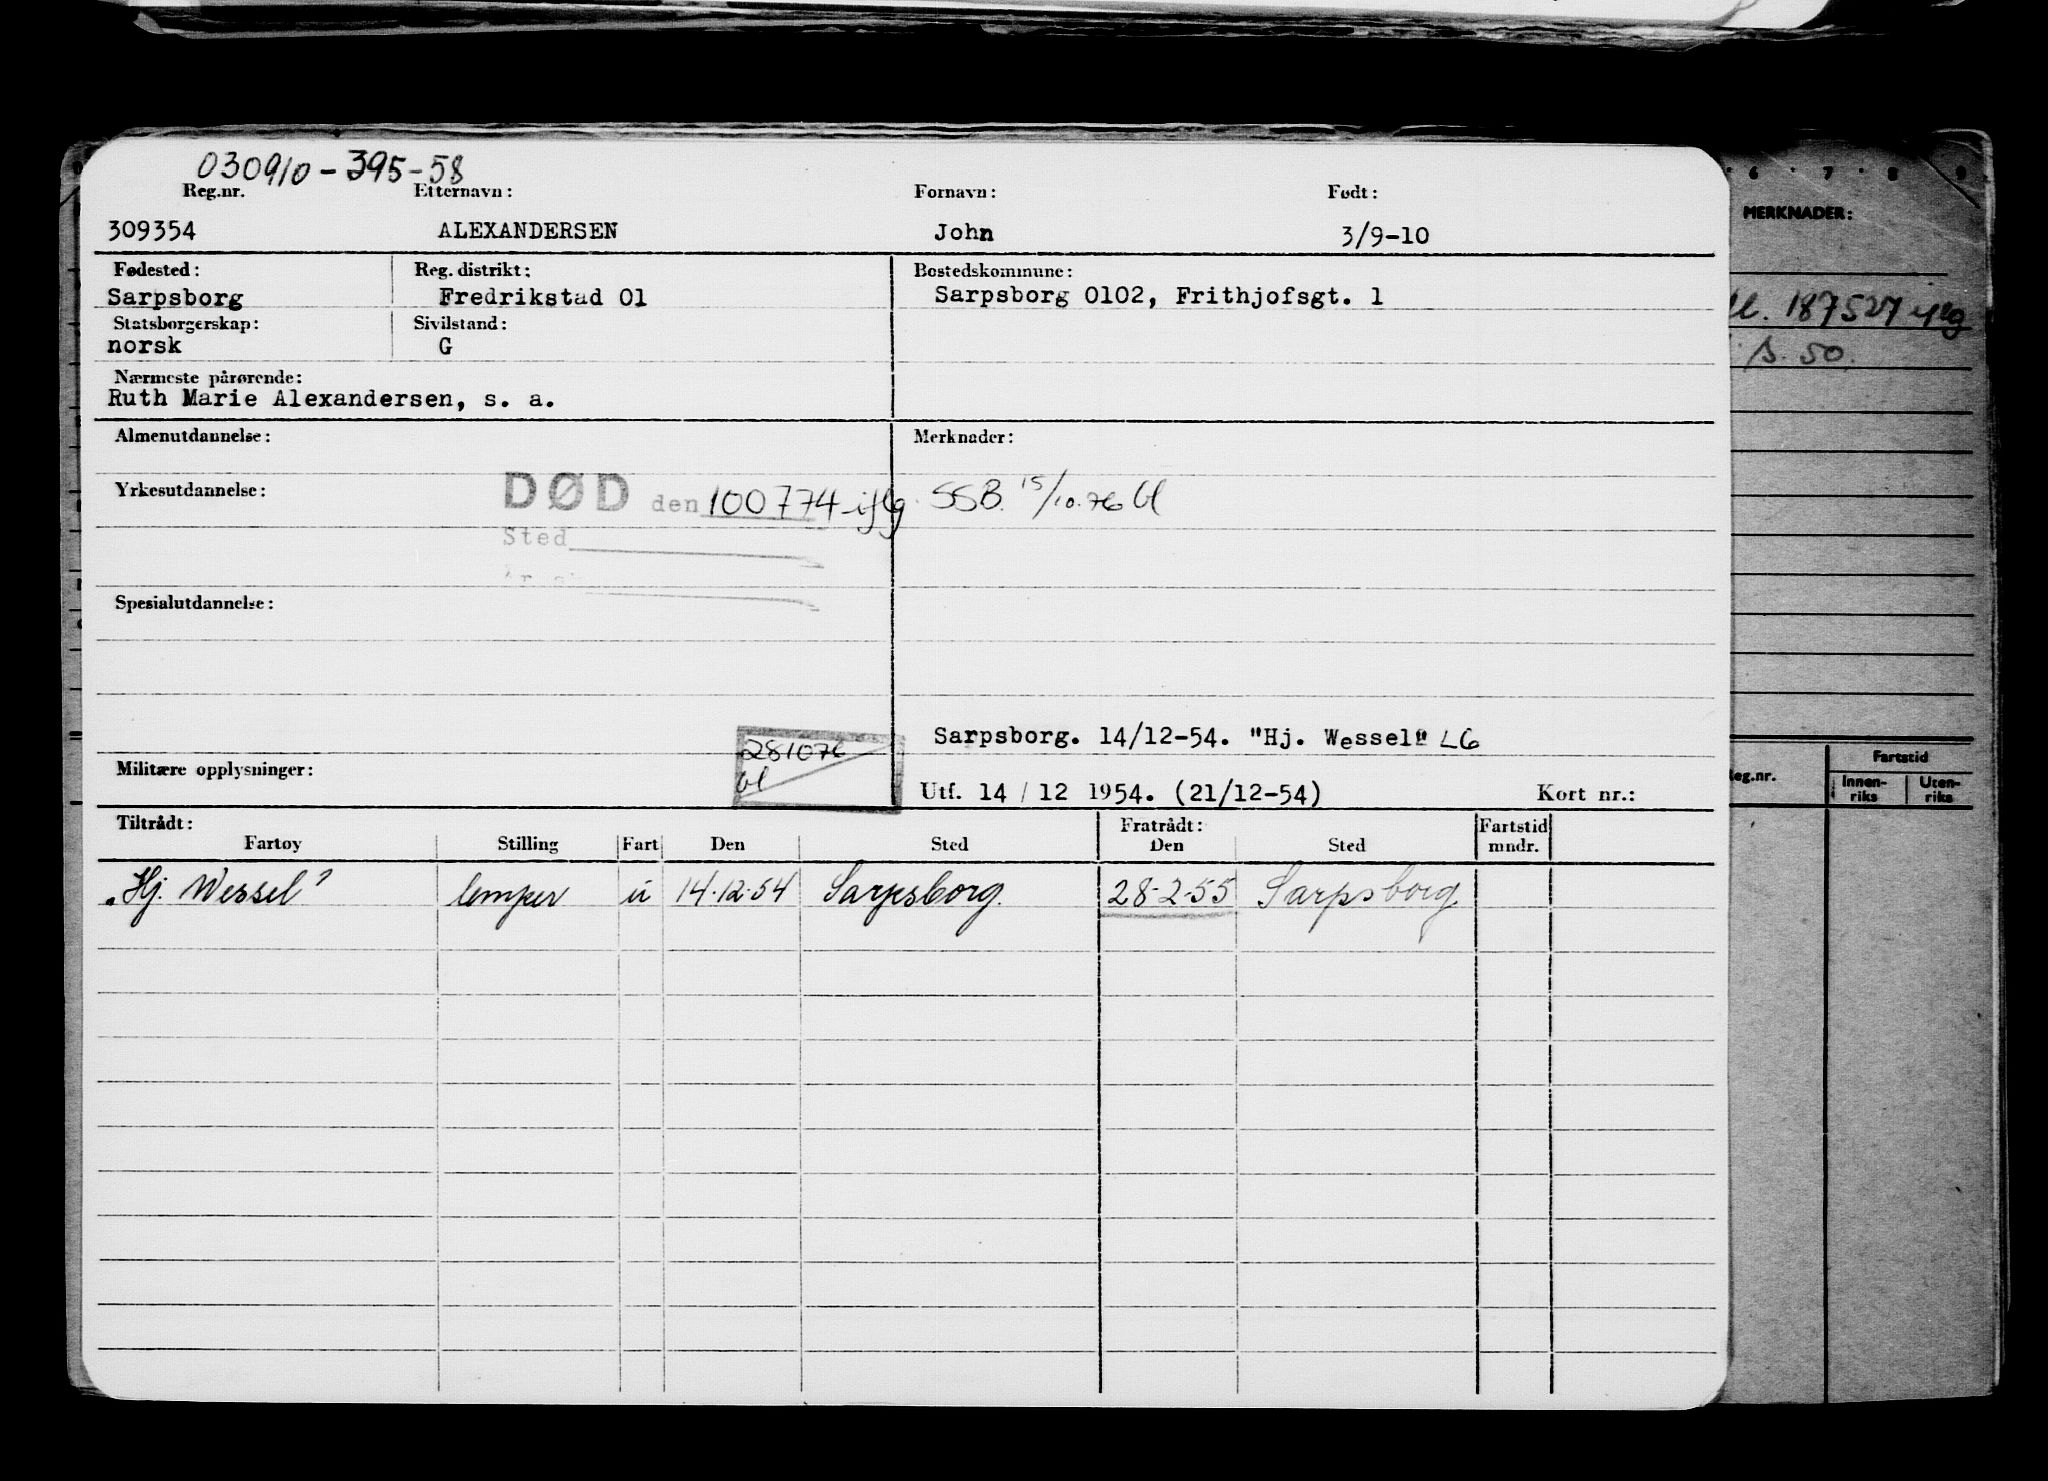 030910-395-58
Reg.nr. Etternavn: Fornavn: Født:
309354 ALEXANDERSEN John 3/9-10
Fødested: Reg. distrikt: Bostedskommune:
Sarpsborg Fredrikstad 01 Sarpsborg 0102, Frithjofsgt. 1
Statsborgerskap: Sivilstand:
norsk G
Nærmeste pårørende:
Ruth Marie Alexandersen, s. a.
Almenutdannelse: Merknader:
Yrkesutdannelse: DØD den 100774 iflg. SSB. 15/10.76 bl
Sted
Spesialutdannelse:
Sarpsborg. 14/12-54. "Hj. Wessel" LG
281076
bl
Militære opplysninger: Utf. 14 / 12 1954. (21/12-54) Kort nr.:
Tiltrådt: Fratrådt: Fartstid
Fartøy Stilling Fart Den Sted Den Sted mndr.
"Hj. Wessel" lemper u 14.12.54 Sarpsborg. 28-2-55 Sarpsborg
6 7 8 9
MERKNADER:
187527
s. 50.
Fartstid
Reg.nr. Innen-riks Uten-riks